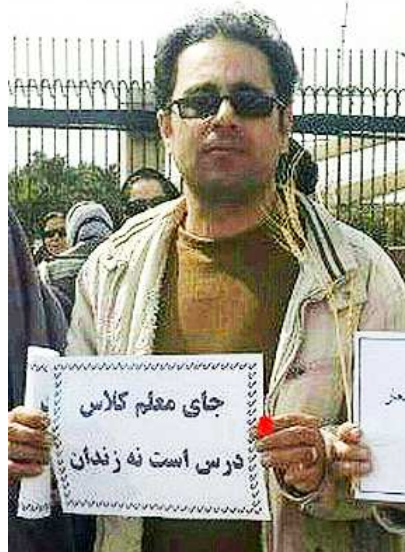 جای معلم کلاس
درس است نه زندان